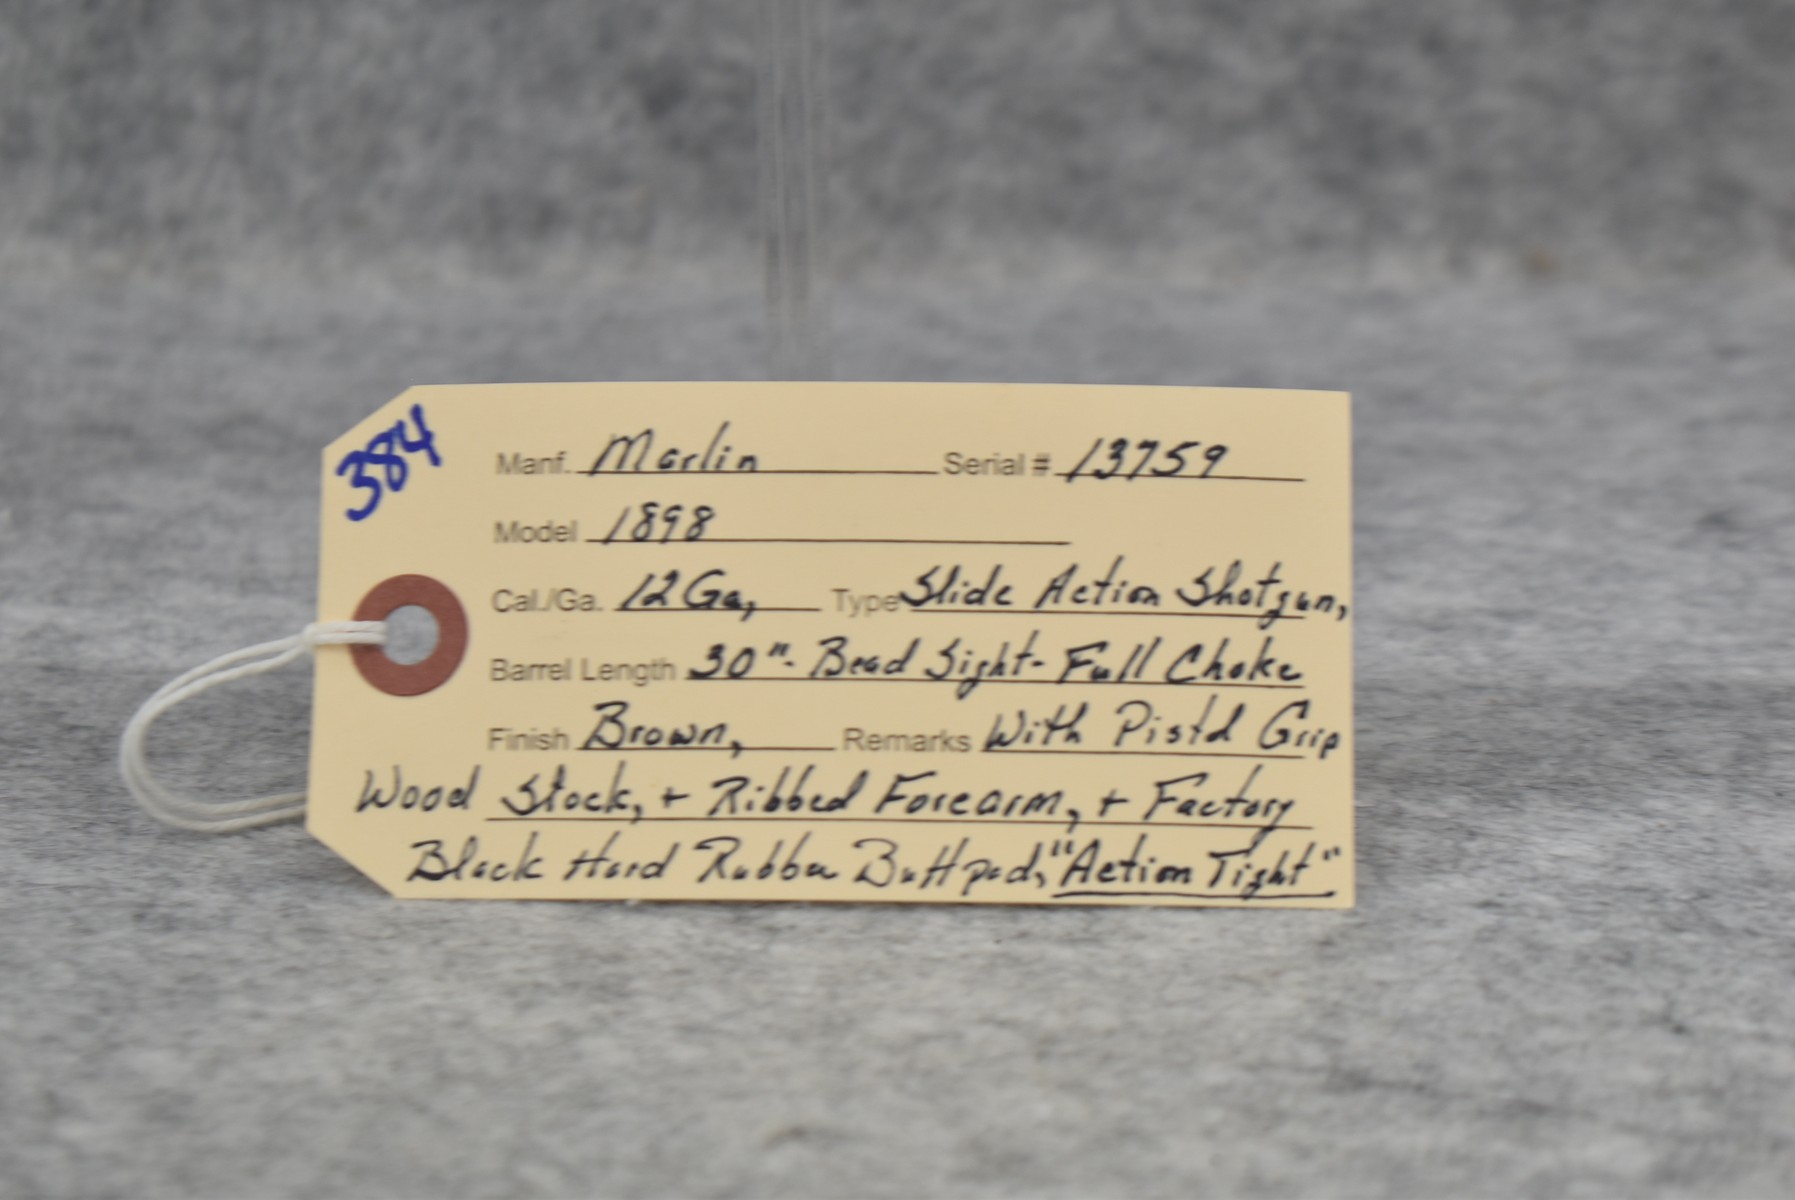 384
Manf. Marlin Serial # 13759
Model 1898
Cal./Ga. 12 Ga, Type Slide Action Shotgun,
Barrel Length 30"- Bead Sight- Full Choke
Finish Brown, Remarks With Pistol Grip
Wood Stock, + Ribbed Forearm, + Factory
Black Hard Rubber Buttpad, "Action Tight"